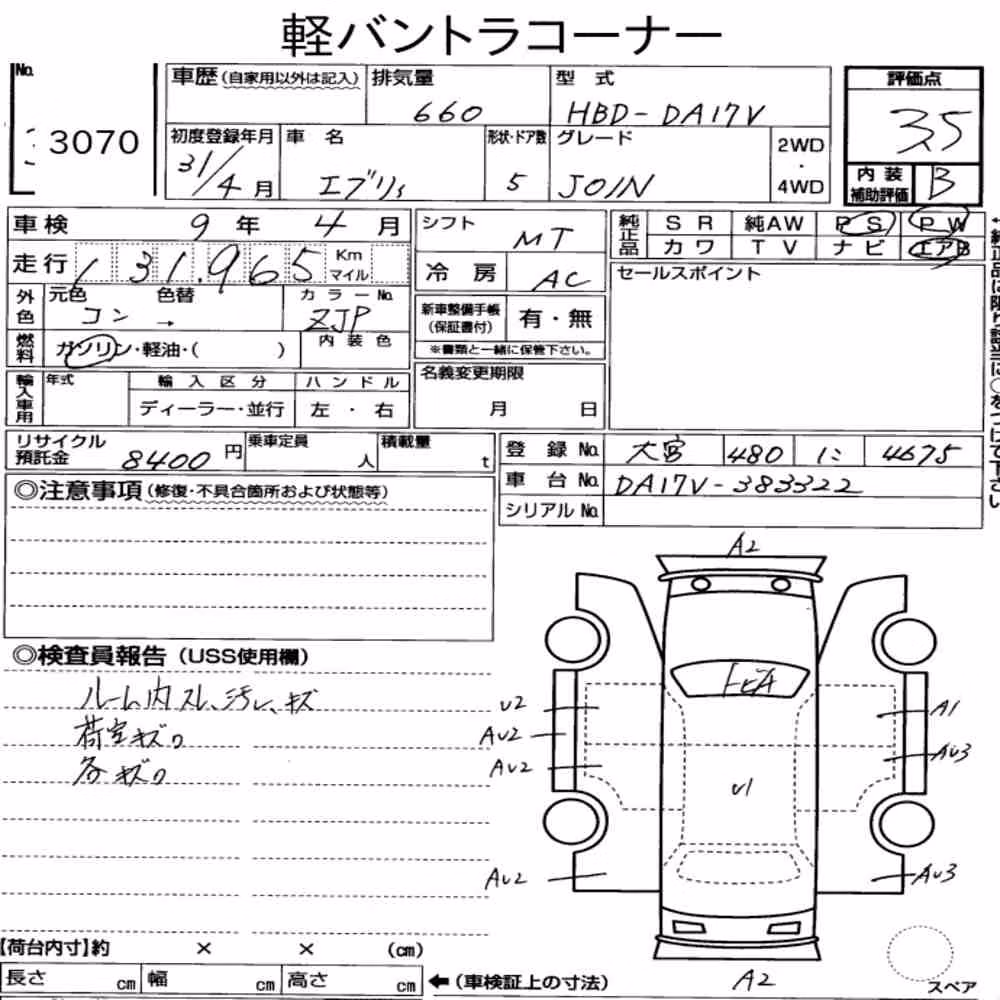 軽バントラコーナー
No. 3070
車歴(自家用以外は記入)
排気量 660
型式 HBD-DA17V
評価点 3.5
初度登録年月 31/4月
車名 エブリィ
形状・ドア数 5
グレード JOIN
2WD・4WD
内装補助評価 B
車検 9年 4月
シフト MT
純正品 SR 純AW PS PW
カワ TV ナビ エアB
走行 131,965 Km マイル
冷房 AC
セールスポイント
外色 元色 コン→ 色替 カラーNo. ZJP
新車整備手帳(保証書付) 有・無
※書類と一緒に保管下さい。
燃料 ガソリン・軽油・( ) 内装色
輸入車用 年式 輸入区分 ハンドル
ディーラー・並行 左・右
名義変更期限
月 日
リサイクル預託金 8400円
乗車定員 人
積載量 t
登録No. 大宮 480 に 4675
車台No. DA17V-383322
シリアルNo.
◎注意事項(修復・不具合箇所および状態等)
◎検査員報告(USS使用欄)
ルーム内スレ、汚レ、キズ
荷室キズ
各キズ
A2
トビA
U2
A1
AU2
AU3
AU2
U1
AU2
AU3
A2
スペア
【荷台内寸】約 × × (cm)
長さ cm 幅 cm 高さ cm
←(車検証上の寸法)